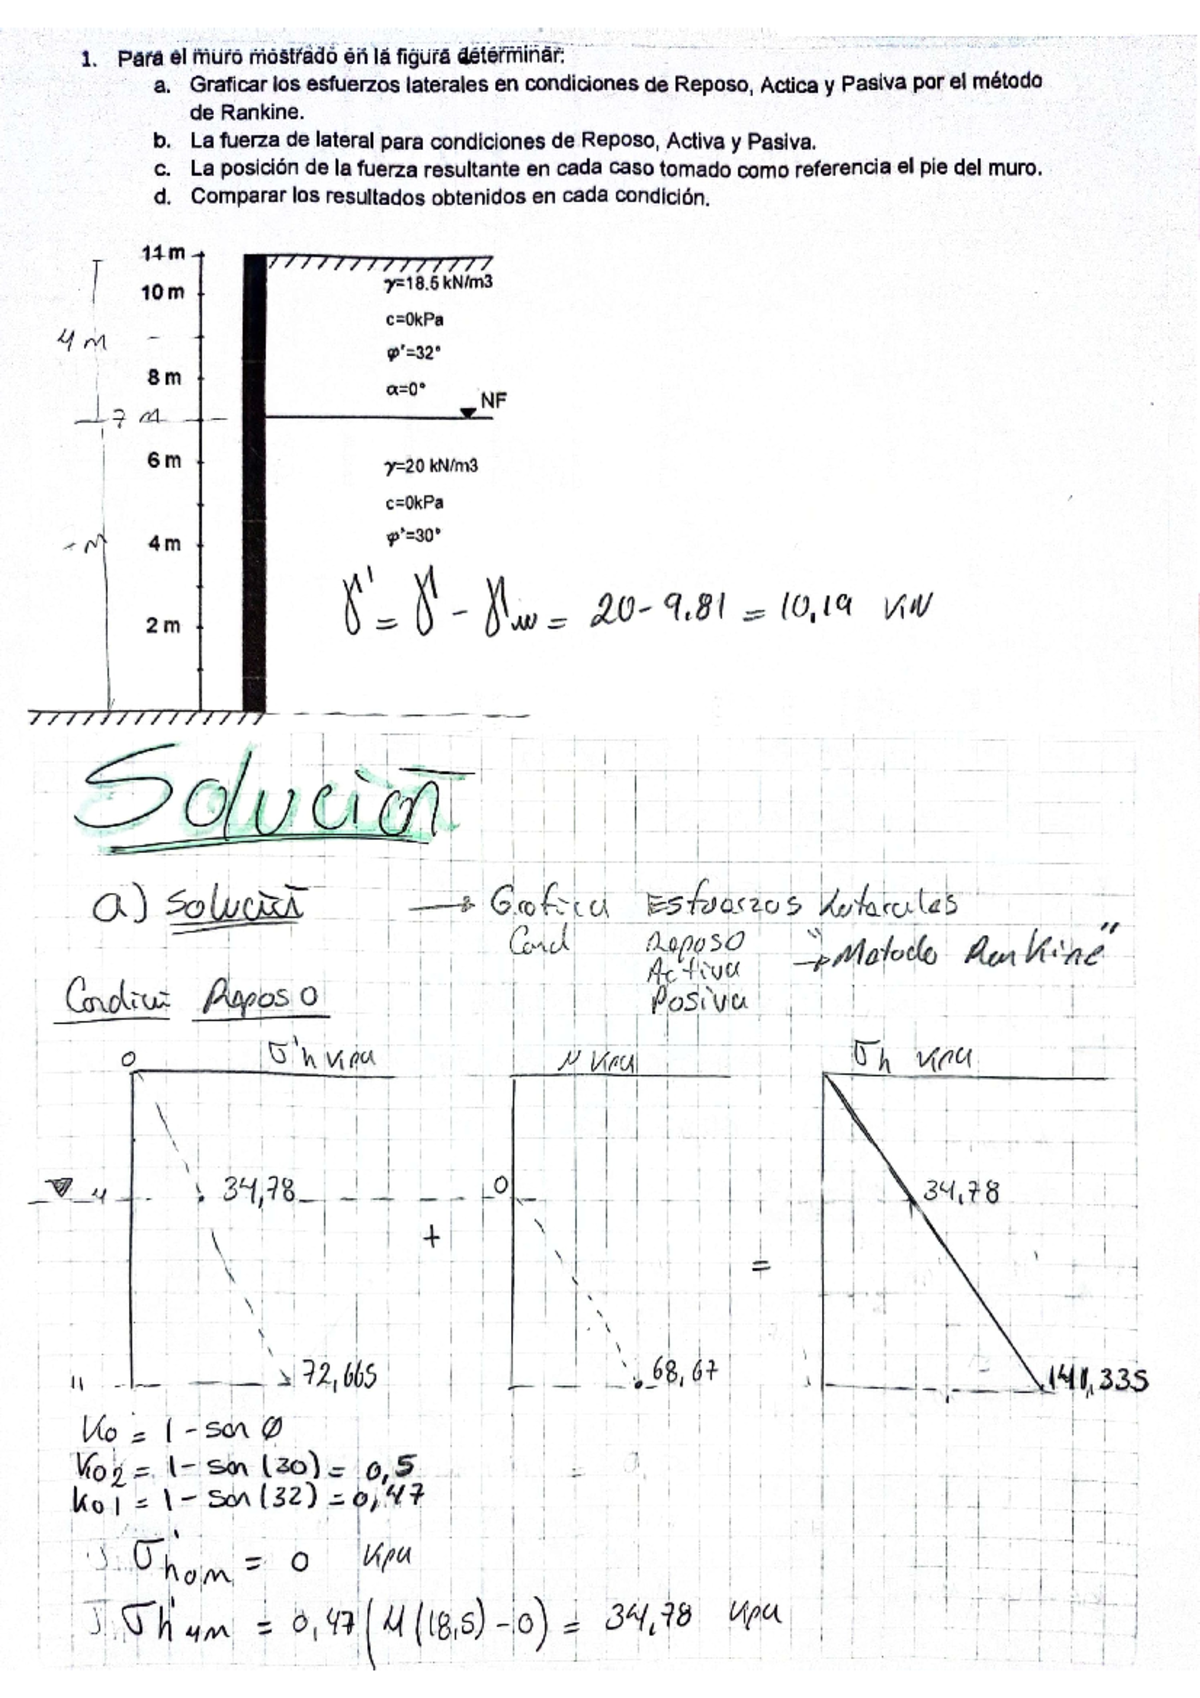 1. Para el muro mostrado en la figura determinar:
a. Graficar los esfuerzos laterales en condiciones de Reposo, Actica y Pasiva por el método
de Rankine.
b. La fuerza de lateral para condiciones de Reposo, Activa y Pasiva.
c. La posición de la fuerza resultante en cada caso tomado como referencia el pie del muro.
d. Comparar los resultados obtenidos en cada condición.
11 m
γ=18.5 kN/m3
10 m
c=0kPa
4 m
φ'=32°
8 m
α=0°
NF
7 m
6 m
γ=20 kN/m3
c=0kPa
4 m
φ'=30°
γ' = γ - γw = 20-9.81 = 10,19 KN
2 m
Solución
a) Solución → Grafica Esfuerzos Laterales
Cond Reposo
Activa
Pasiva
→ "Metodo Rankine"
Condición Reposo
0 σ'h kpa
μ kpa
σh kpa
4 34,78 0 34,78
+ =
11 72,665 68,67 141,335
Ko = 1 - sen Ø
Ko2 = 1- sen (30) = 0,5
Ko1 = 1 - sen (32) = 0,47
σ'h0m = 0 kpa
σ'h4m = 0,47 (4 (18,5) - 0) = 34,78 kpa